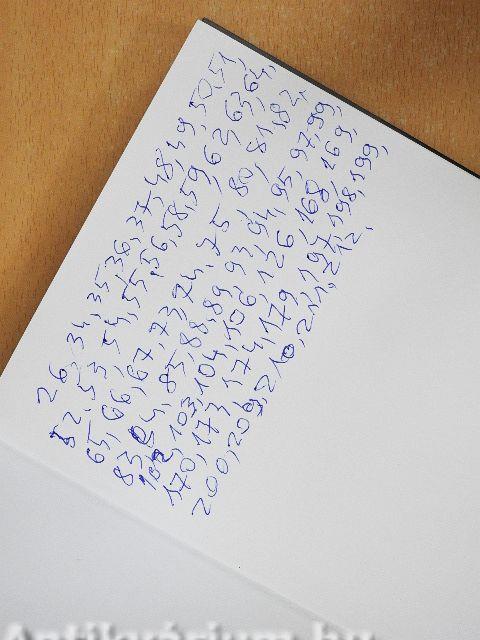 26, 34, 35, 36, 37, 48, 49, 50, 51,
52, 53, 54, 55, 56, 58, 59, 62, 63, 64,
65, 66, 67, 73, 74, 75, 80, 81, 82,
83, 84, 85, 88, 89, 93, 94, 95, 97, 99,
102, 103, 104, 106, 126, 168, 169,
170, 173, 174, 179, 197, 198, 199,
200, 209, 210, 211, 212.
Antikvárium.hu